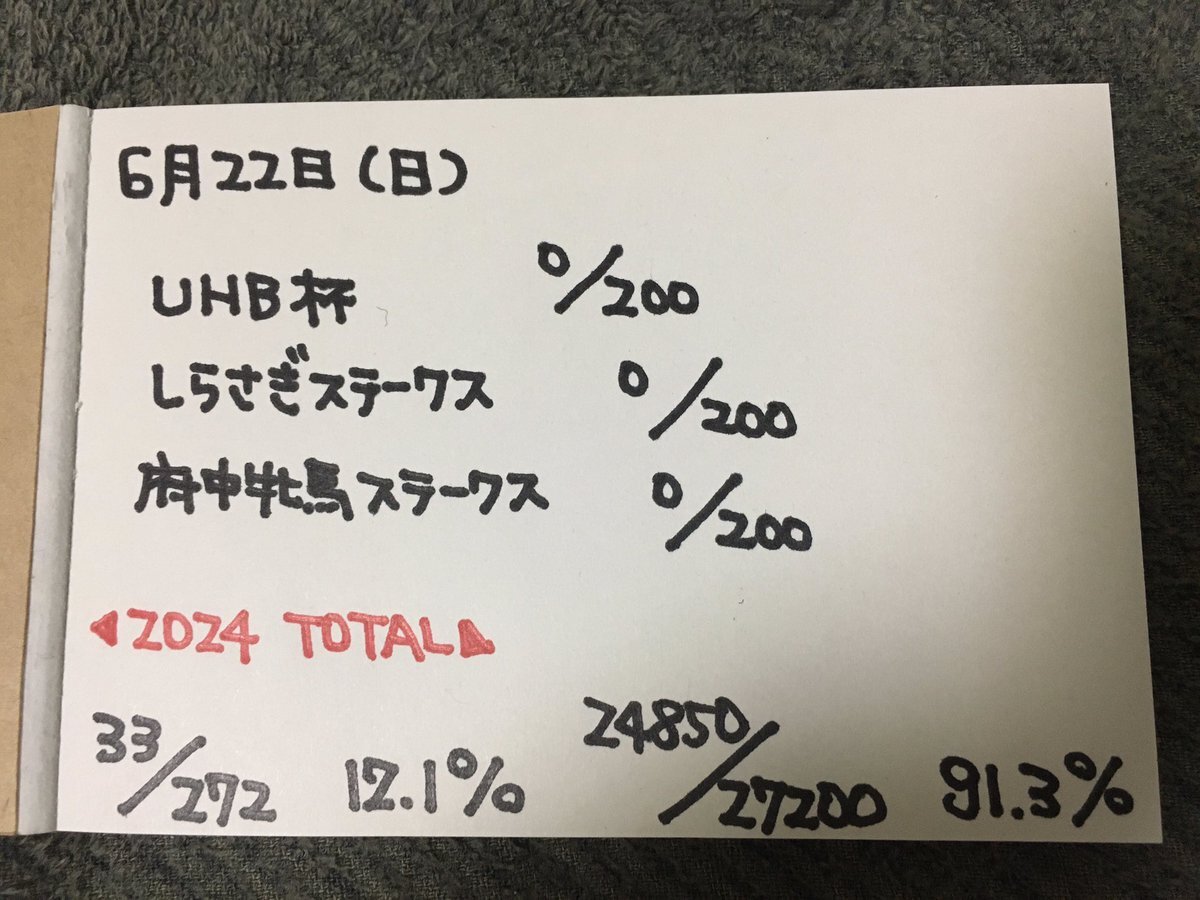 6月22日(日)
UHB杯 0/200
しらさぎステークス 0/200
府中牝馬ステークス 0/200
◀2024 TOTAL▶
33/272 12.1% 24850/27200 91.3%